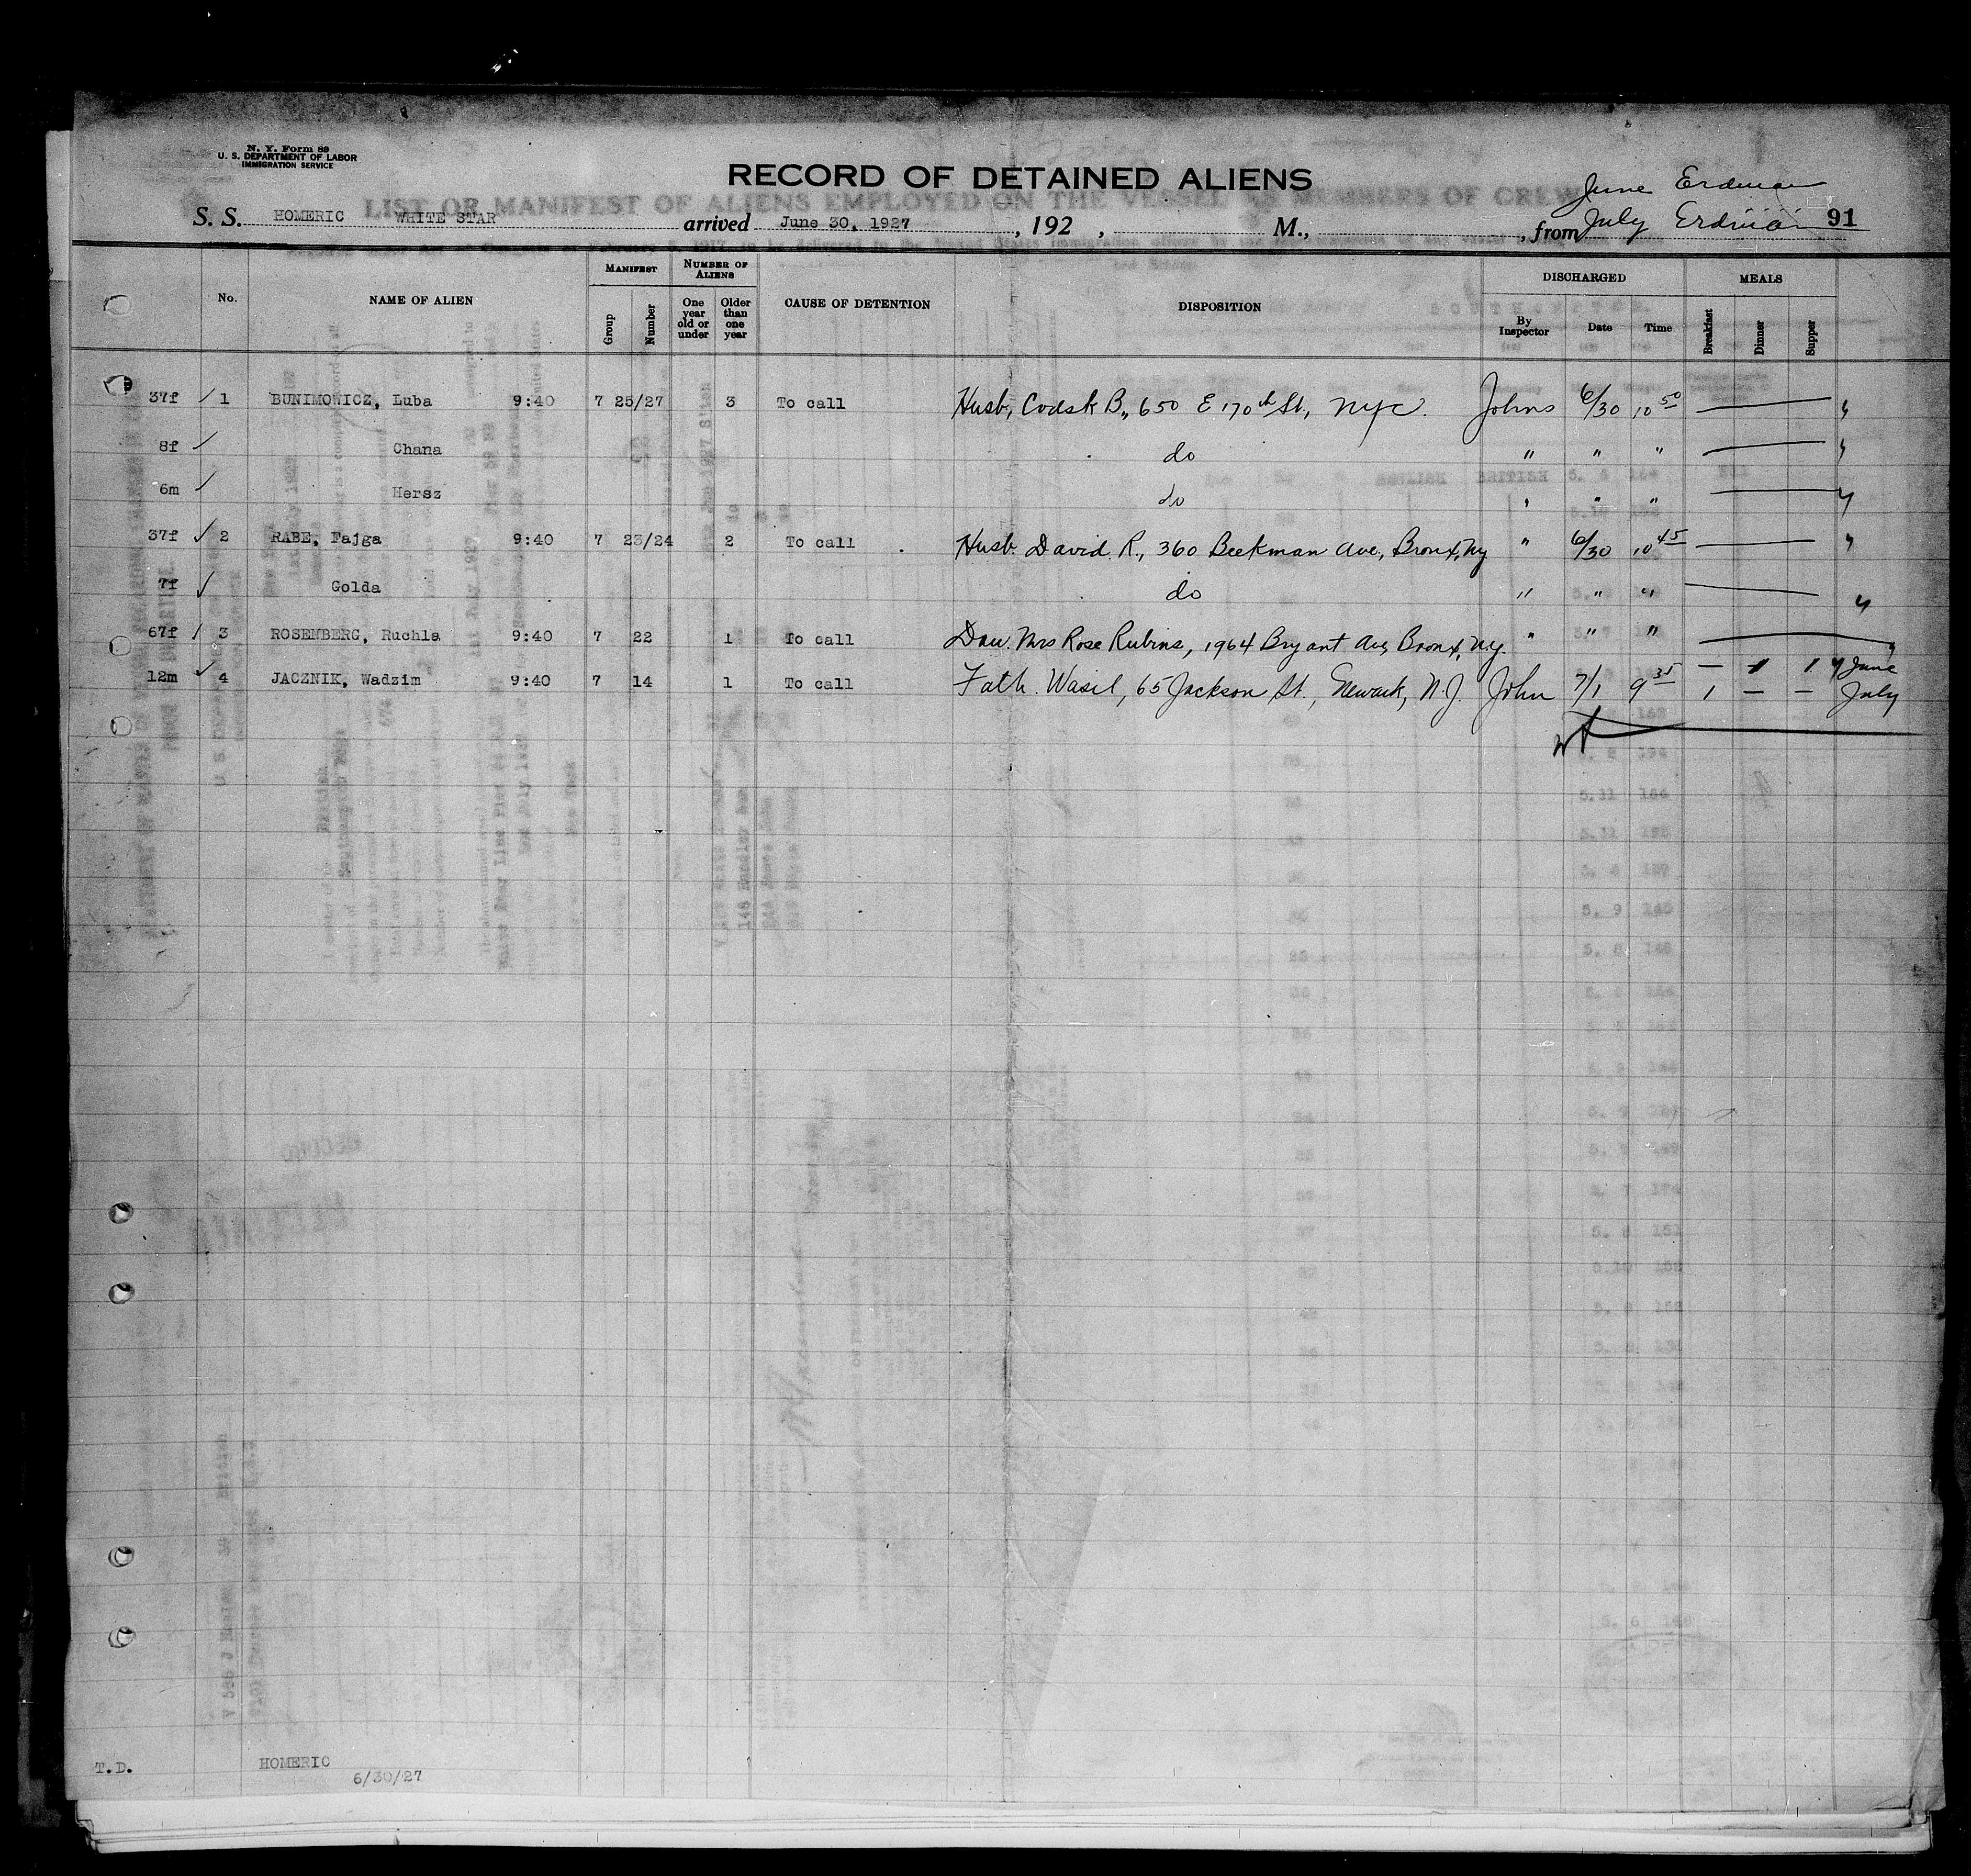 N. Y. Form 89
U. S. DEPARTMENT OF LABOR
IMMIGRATION SERVICE
RECORD OF DETAINED ALIENS
LIST OR MANIFEST OF ALIENS EMPLOYED ON THE VESSEL AS MEMBERS OF CREW
June Erdman
S. S. HOMERIC WHITE STAR arrived June 30, 1927, 192 , M., from July Erdman 91
No. NAME OF ALIEN MANIFEST Group Number NUMBER OF ALIENS One year old or under Older than one year CAUSE OF DETENTION DISPOSITION DISCHARGED By Inspector Date Time MEALS Breakfast Dinner Supper
37f ✓ 1 BUNIMOWICZ, Luba 9:40 7 25/27 3 To call Husb, B., 650 E 170th St, NYC. Johns 6/30 10 50 —
8f ✓ Chana do " " " —
6m ✓ Hersz do " " " —
37f ✓ 2 RABE, Fajga 9:40 7 23/24 2 To call Husb. David R., 360 Beekman Ave, Bronx, Ny " 6/30 10 45 —
7f ✓ Golda do " " " —
67f ✓ 3 ROSENBERG, Ruchla 9:40 7 22 1 To call Dau. Mrs Rose Rubins, 1964 Bryant Ave, Bronx, N.Y. " " " —
12m ✓ 4 JACZNIK, Wadzim 9:40 7 14 1 To call Fath. Wasil, 65 Jackson St, Newark, N.J. John 7/1 9 35 — 1 1 June
1 — — July
T.D. HOMERIC
6/30/27